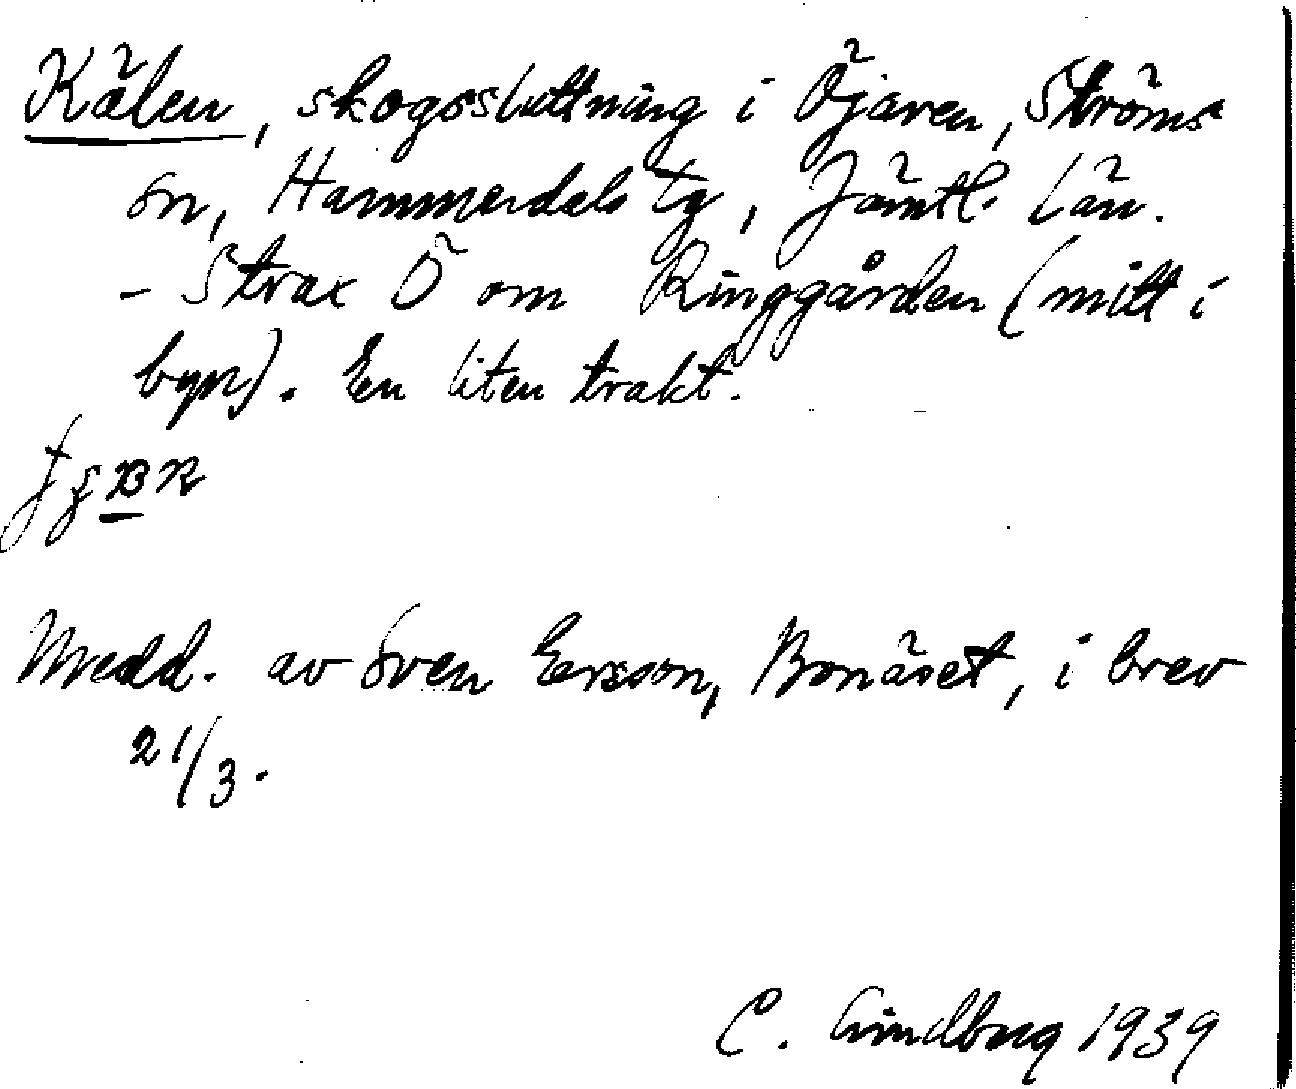 Kälen, skogssluttning i Öjaren, Ströms
sn, Hammerdals tg, Jämtl. län.
- Strax Ö om Ringgården (mitt i
byn). En liten trakt.
Medd. av Sven Ersson, Bonäset, i brev
21/3.
C. Lindberg 1939